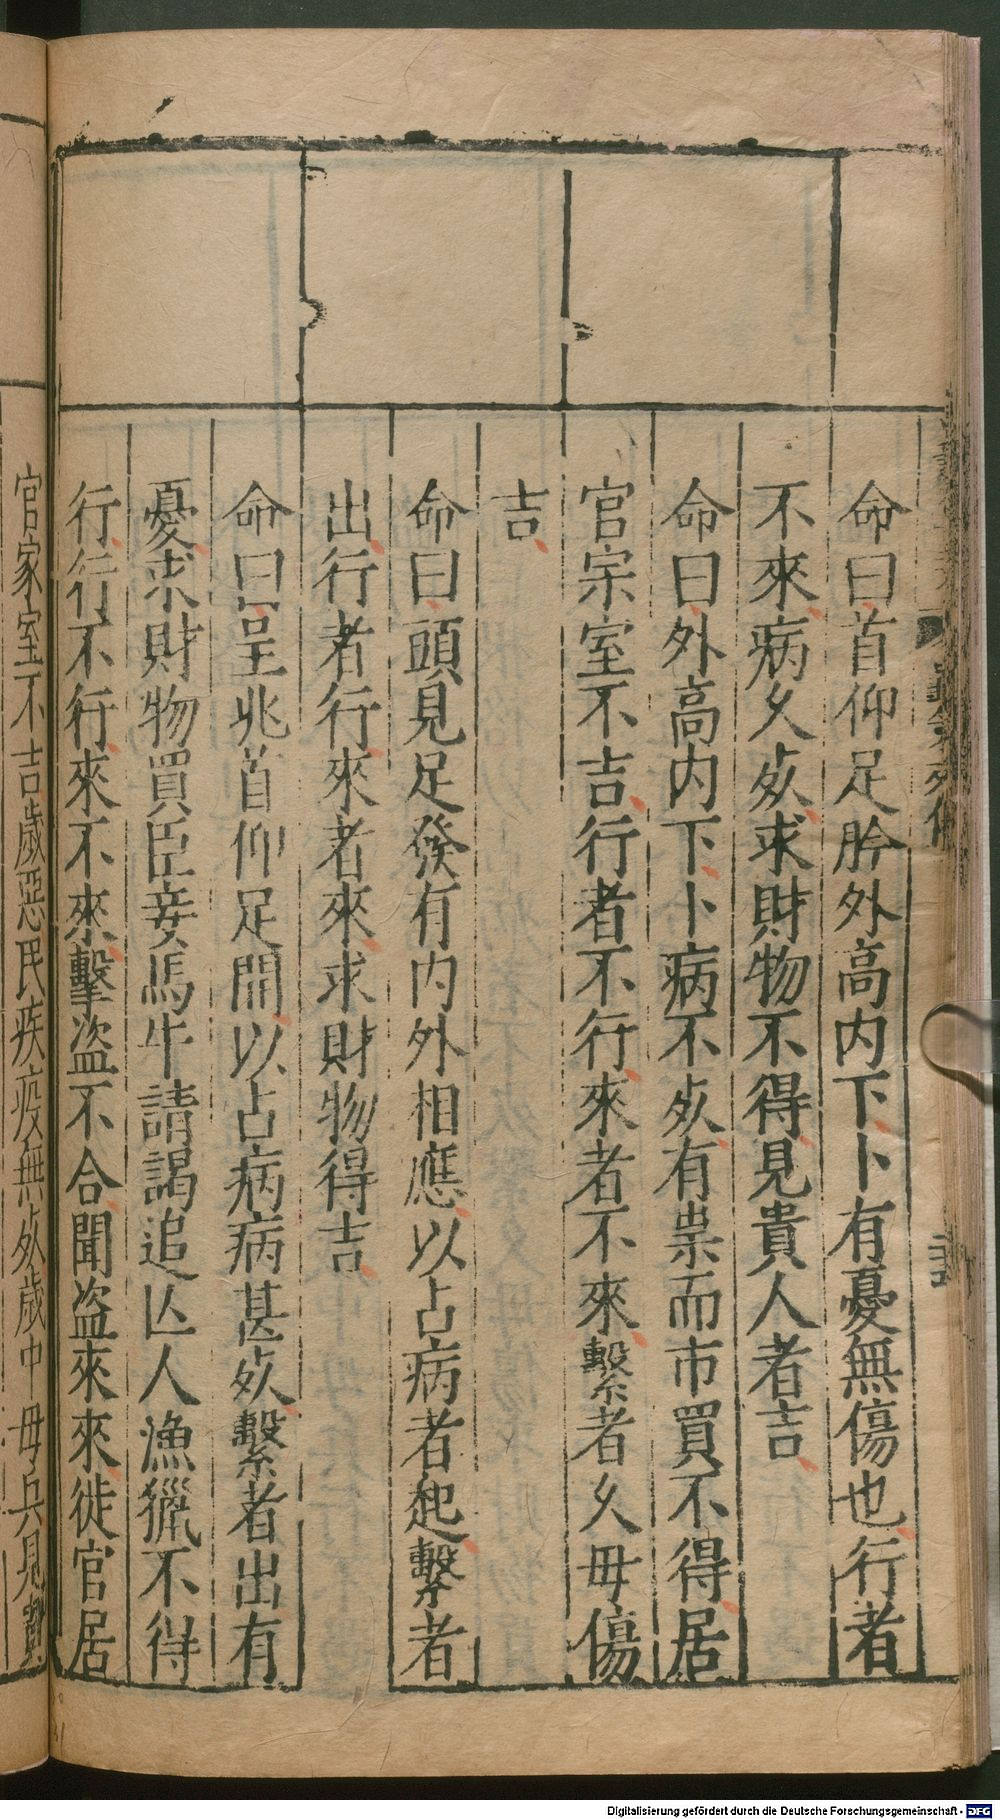 命曰首仰足肣外高内下卜有憂無傷也行者
不來病久死求財物不得見貴人者吉
命曰外高内下卜病不死有祟而市買不得居
官家室不吉行者不行來者不來繫者久毋傷
吉
命曰頭見足發有内外相應以占病者起繫者
出行者行來者來求財物得吉
命曰呈兆首仰足開以占病病甚死繫者出有
憂求財物買臣妾馬牛請謁追亾人漁獵不得
行行不行來不來擊盜不合聞盜來來徙官居
官家室不吉歲惡民疾疫無死歲中毋兵見貴
Digitalisierung gefördert durch die Deutsche Forschungsgemeinschaft - DFG